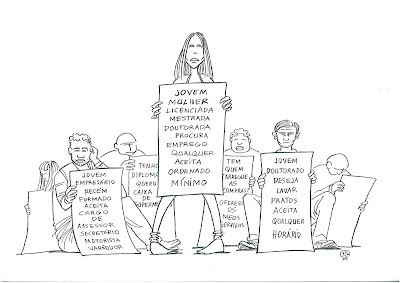 JOVEM
MULHER
LICENCIADA
MESTRADA
DOUTORADA
PROCURA
EMPREGO
QUALQUER
ACEITA
ORDENADO
MÍNIMO
JOVEM
EMPRESÁRIO
RECÉM
FORMADO
ACEITA
CARGO
DE
ASSESSOR
SECRETÁRIO
MOTORISTA
VARREDOR
TENHO
DIPLOMA
QUERO
CAIXA
DE
TEM
QUEM
ARRUME
AS
COMPRAS?
OFEREÇO
OS
MEUS
SERVIÇOS
JOVEM
DOUTORADO
DESEJA
LAVAR
PRATOS
ACEITA
QUALQUER
HORÁRIO